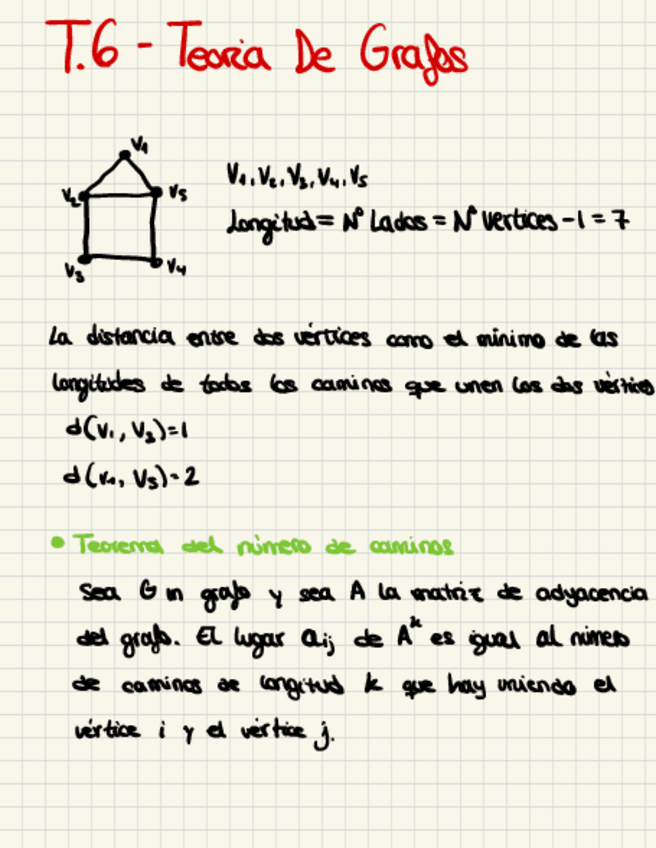 T.6 - Teoria De Grafos
V1
V2
V5
V3
V4
V1, V2, V3, V4, V5
Longitud = Nº Lados = Nº vertices - 1 = 7
La distancia entre dos vértices como el mínimo de las
longitudes de todos los caminos que unen los dos vértices
d(V1, V2)=1
d(V1, V3)=2
• Teorema del número de caminos
Sea G un grafo y sea A la matriz de adyacencia
del grafo. El lugar aij de A^k es igual al número
de caminos de longitud k que hay uniendo el
vértice i y el vértice j.